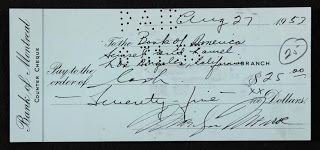 PAID
Aug 27 1953
To the Bank of America
and Laurel
Los Angeles, California BRANCH
25
Bank of Montreal
COUNTER CHEQUE
Pay to the order of Cash $25.00
Seventy five xx/100 Dollars
Marilyn Monroe